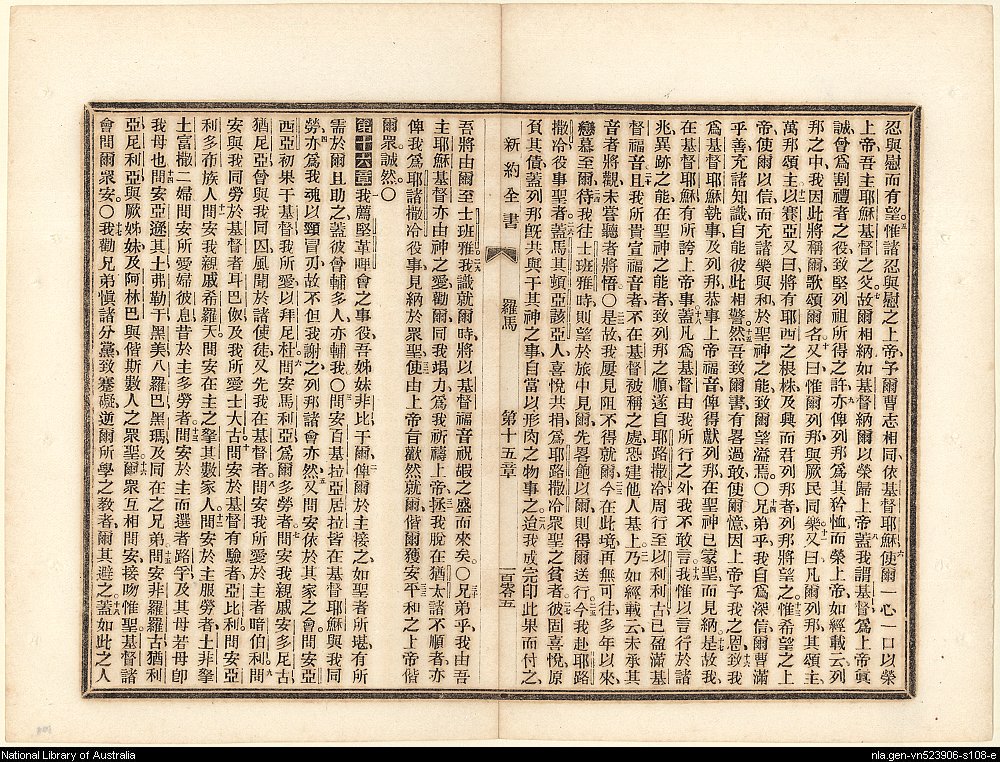 忍與慰而有望。惟諸忍與慰之上帝予爾曹志相同依基督耶穌使爾一心一口以榮
上帝、吾主耶穌基督之父。故爾相納如基督納爾以榮歸上帝。蓋我謂基督爲上帝眞
誠、曾爲割禮者之役、致堅列祖所得之許亦俾列邦爲其矜恤而榮上帝、如經載云列
邦之中我因此將稱爾歌頌爾名又曰惟爾列邦與厥民同樂。又曰凡爾列邦其頌主、
萬邦頌主以賽亞又曰將有耶西之根株及興而君列邦者列邦將望之。惟希望之上
帝使爾以信而充諸樂與和於聖神之能致爾望溢焉。〇兄弟乎我自爲深信爾曹滿
乎善充諸知識自能彼此相警然吾致爾書有畧過敢使爾憶因上帝予我之恩致我
爲基督耶穌執事及列邦恭事上帝福音俾得獻列邦在聖神已蒙聖而見納是故我
在基督耶穌有所誇上帝事蓋凡爲基督由我所行之外我不敢言我惟以言行於諸
兆異跡之能在聖神之能者致列邦之順遂自耶路撒冷周行至以利利古已盈滿基
督福音且我所貴宣福音者不在基督被稱之處恐建他人基上乃如經載云未承其
音者將觀未嘗聽者將悟〇是故我屢見阻不得就爾今在此境再無可往多年以來、
戀慕至爾待我往士班雅時則望於旅中見爾先畧飽以爾則得爾送行今我赴耶路
撒冷役事聖者。蓋馬其頓亞該亞人喜悅共捐爲耶路撒冷衆聖之貧者彼固喜悅原
負其債蓋列邦旣共與于其神之事自當以形肉之物事之。迨我成完印此果而付之、
新約全書 羅馬 第十五章 一百零五
吾將由爾至士班雅我識就爾時將以基督福音祝嘏之盛而來矣。〇兄弟乎我由吾
主耶穌基督亦由神之愛勸爾同我竭力爲我祈禱上帝拯我脫在猶太諸不順者亦
俾我爲耶路撒冷役事見納於衆聖使由上帝旨歡然就爾偕爾獲安平和之上帝偕
爾衆誠然。〇
第十六章 我薦堅革哩會之事役吾姊妹非比于爾俾爾於主接之如聖者所堪有所
需於爾且助之蓋彼曾輔多人亦輔我〇問安百基拉亞居拉皆在基督耶穌與我同
勞亦爲我魂以頸冒刃故不但我謝之列邦諸會亦然又問安依於其家之會問安亞
西亞初果于基督我所愛以拜尼杜問安馬利亞爲爾多勞者問安我親戚安多尼古
猶尼亞曾與我同囚風聞於諸使徒又先我在基督者問安我所愛於主者暗伯利問
安與我同勞於基督者耳巴伮及我所愛士大古問安於基督有驗者亞比利問安亞
利多布族人問安我親戚希羅天問安在主之拏其數家人問安於主服勞者土非拏
土富撒二婦問安所愛婦彼息昔於主多勞者問安於主而選者路孚及其母若母卽
我母也問安亞遜其土弗勒于黑美八羅巴黑瑪及同在之兄弟問安非羅羅古猶利
亞尼利亞與厥姊妹及阿林巴與偕斯數人之衆聖爾衆互相問安接吻惟聖基督諸
會問爾衆安〇我勸兄弟愼諸分黨致蹇礙逆爾所學之敎者爾其避之蓋如此之人
National Library of Australia
nla.gen-vn523906-s108-e